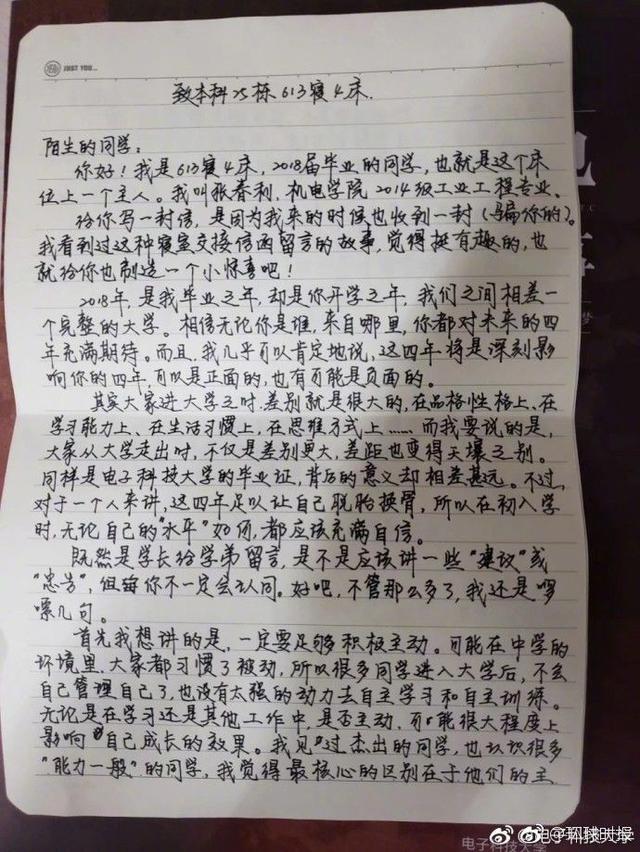 JUST YOU...
致本科25栋613寝4床.
陌生的同学:
你好!我是613寝4床,2018届毕业的同学,也就是这个床
位上一个主人。我叫张春利,机电学院2014级工业工程专业。
给你写一封信,是因为我来的时候也收到一封(骗你的)。
我看到过这种寝室交接信函留言的故事,觉得挺有趣的,也
就给你也制造一个小惊喜吧!
2018年,是我毕业之年,却是你开学之年,我们之间相差一
个完整的大学。相信无论你是谁,来自哪里,你都对未来的四
年充满期待。而且,我几乎可以肯定地说,这四年将是深刻影
响你的四年,可以是正面的,也有可能是负面的。
其实大家进大学之时,差别就是很大的,在品格性格上、在
学习能力上、在生活习惯上,在思维方式上……而我要说的是,
大家从大学走出时,不仅是差别更大,差距也变得天壤之别。
同样是电子科技大学的毕业证,背后的意义却相差甚远。不过,
对于一个人来讲,这四年足以让自己脱胎换骨,所以在初入学
时,无论自己的"水平"如何,都应该充满自信。
既然是学长给学弟留言,是不是应该讲一些"建议"或
"忠告",但每你不一定会认同。好吧,不管那么多了,我还是啰
嗦几句。
首先我想讲的是,一定要足够积极主动。可能在中学的
环境里,大家都习惯了被动,所以很多同学进入大学后,不会
自己管理自己了,也没有太强的动力去自主学习和自主训练。
无论是在学习还是其他工作中,是否主动,可能很大程度上
影响自己成长的效果。我见过杰出的同学,也认识很多
"能力一般"的同学,我觉得最核心的区别在于他们的主
@环球时报